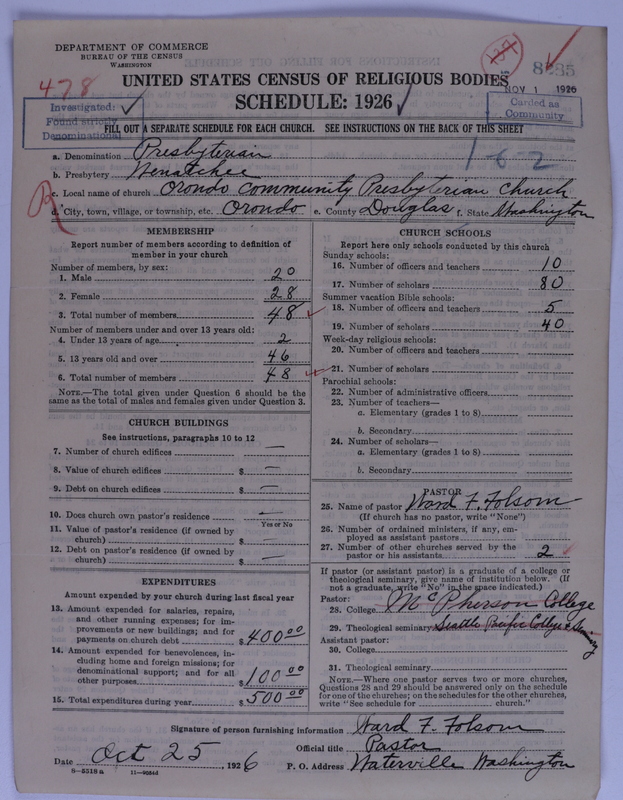 DEPARTMENT OF COMMERCE
BUREAU OF THE CENSUS
WASHINGTON
478
NOV 1 1926
UNITED STATES CENSUS OF RELIGIOUS BODIES
SCHEDULE: 1926
Investigated:
Found strictly
Denominational
Carded as
Community
FILL OUT A SEPARATE SCHEDULE FOR EACH CHURCH. SEE INSTRUCTIONS ON THE BACK OF THIS SHEET
1-6-2
a. Denomination Presbyterian
b. Presbytery Wenatchee
c. Local name of church Orondo Community Presbyterian Church
R
d. City, town, village, or township, etc. Orondo e. County Douglas f. State Washington
MEMBERSHIP
Report number of members according to definition of
member in your church
Number of members, by sex:
1. Male 20
2. Female 28
3. Total number of members 48
Number of members under and over 13 years old:
4. Under 13 years of age 2
5. 13 years old and over 46
6. Total number of members 48
NOTE.—The total given under Question 6 should be the
same as the total of males and females given under Question 3.
CHURCH BUILDINGS
See instructions, paragraphs 10 to 12
7. Number of church edifices —
8. Value of church edifices $ —
9. Debt on church edifices $ —
10. Does church own pastor's residence —
Yes or No
11. Value of pastor's residence (if owned by
church) $ —
12. Debt on pastor's residence (if owned by
church) $ —
EXPENDITURES
Amount expended by your church during last fiscal year
13. Amount expended for salaries, repairs,
and other running expenses; for im-
provements or new buildings; and for
payments on church debt $ 400 00
14. Amount expended for benevolences, in-
cluding home and foreign missions; for
denominational support; and for all
other purposes $ 100 00
15. Total expenditures during year $ 500 00
CHURCH SCHOOLS
Report here only schools conducted by this church
Sunday schools:
16. Number of officers and teachers 10
17. Number of scholars 80
Summer vacation Bible schools:
18. Number of officers and teachers 5
19. Number of scholars 40
Week-day religious schools:
20. Number of officers and teachers
21. Number of scholars
Parochial schools:
22. Number of administrative officers
23. Number of teachers—
a. Elementary (grades 1 to 8)
b. Secondary
24. Number of scholars—
a. Elementary (grades 1 to 8)
b. Secondary
PASTOR
25. Name of pastor Ward F. Folsom
(If church has no pastor, write "None")
26. Number of ordained ministers, if any, em-
ployed as assistant pastors
27. Number of other churches served by the
pastor or his assistants 2
If pastor (or assistant pastor) is a graduate of a college or
theological seminary, give name of institution below. (If
not a graduate, write "No" in the space indicated.)
Pastor:
28. College McPherson College
29. Theological seminary Seattle Pacific College & Seminary
Assistant pastor:
30. College
31. Theological seminary
NOTE.—Where one pastor serves two or more churches,
Questions 28 and 29 should be answered only on the schedule
for one of the churches; on the schedules for the other churches,
write "See schedule for church."
Signature of person furnishing information Ward F. Folsom
Official title Pastor
Date Oct 25, 1926 P. O. Address Waterville Washington
8—5518 a